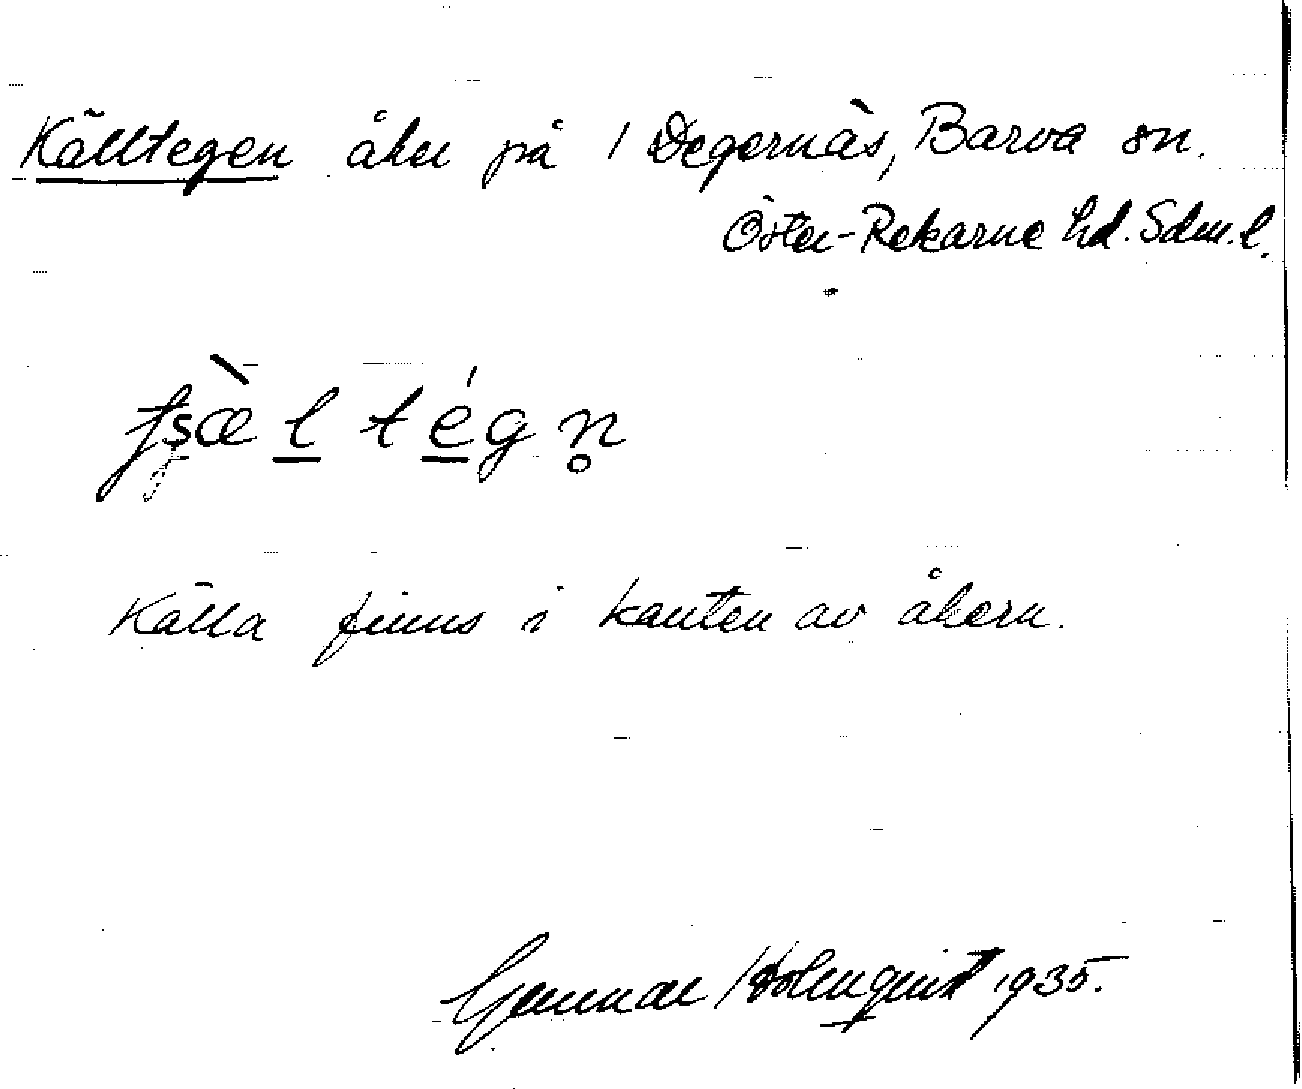 Källtegen åker på 1 Degernäs, Barva sn.
Öster-Rekarne hd. Sdm. l.
Källa finns i kanten av åkern.
Gunnar Holmquist 1935.